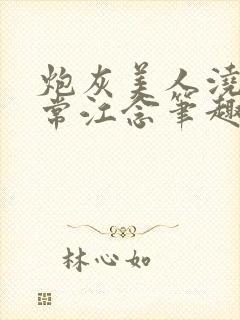 炮灰美人浇
常江念笔趣
林心如